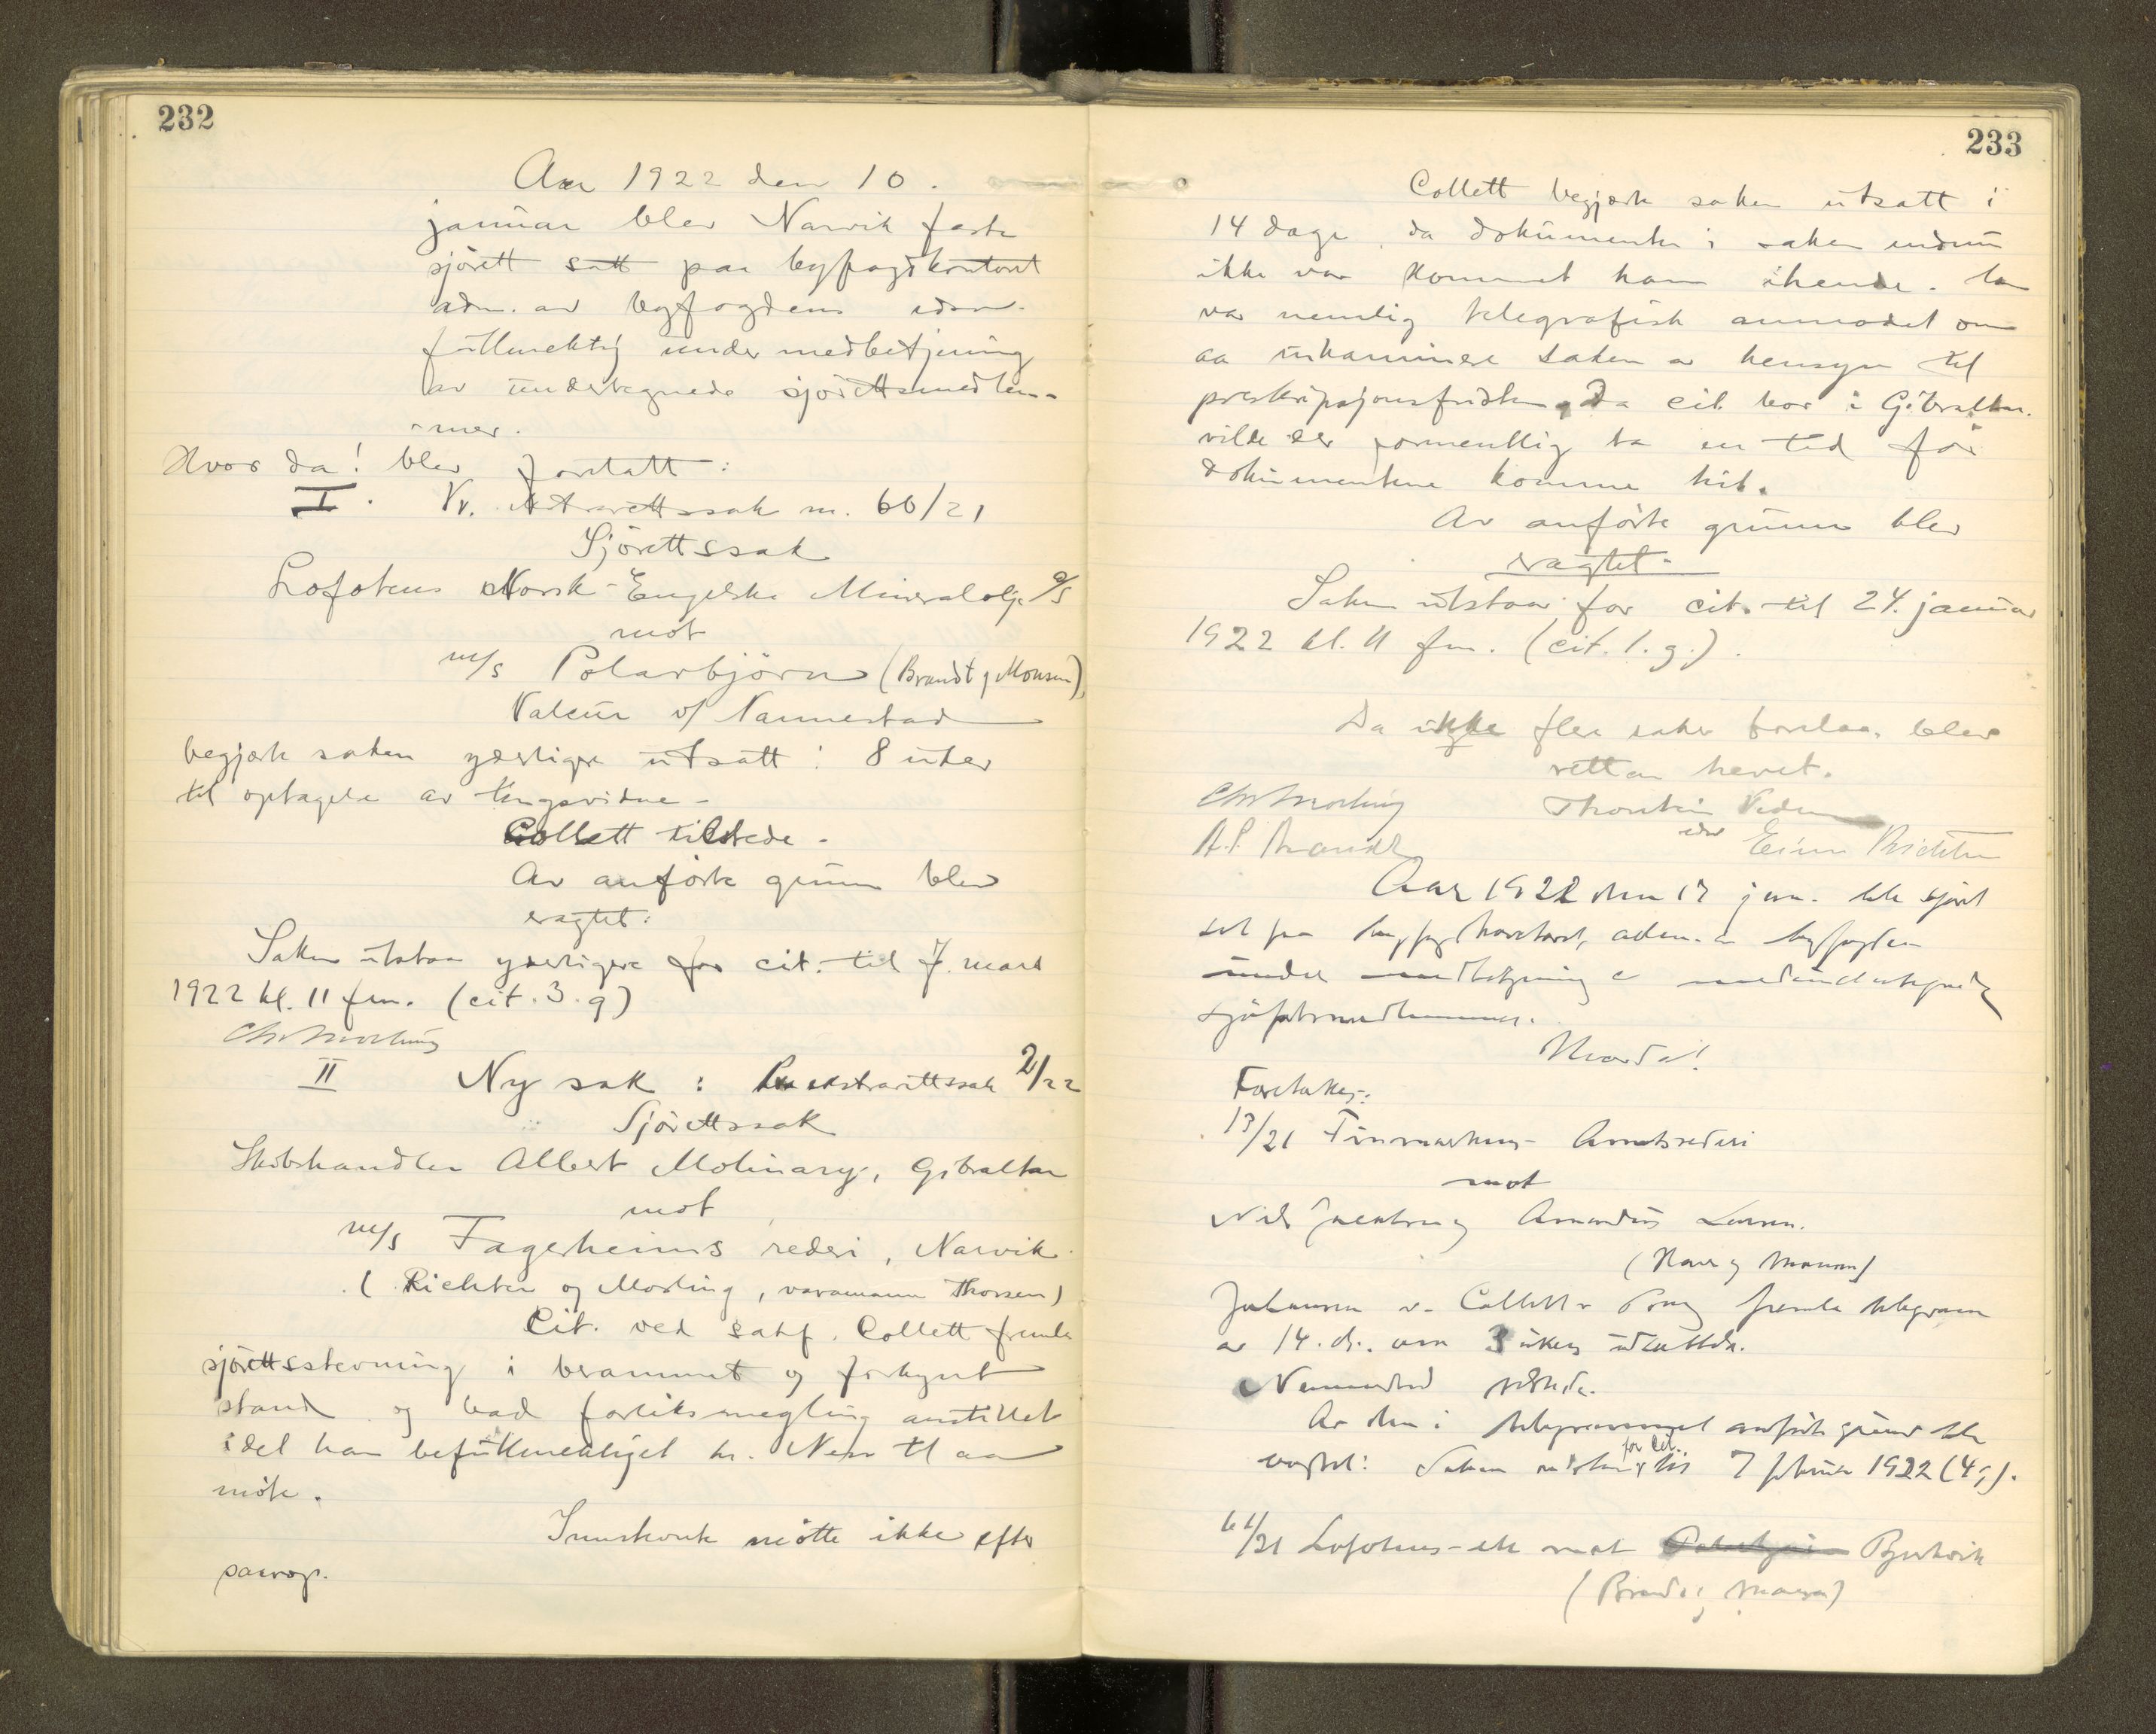 232
Aar 1922 den 10.
januar blev Narvik faste
sjörett satt paa byfogdkontoret
adm. av byfogdens edsv.
fullmektig under medbetjening
av undertegnede sjörettsmedlem-
mer.
Hvor da! blev foretatt:
I. Nr. 60/21
Sjörettssak
Lofotens Norsk-Engelske Mineralolje a/s
mot
m/s Polarbjörn (Brandt og Monsen),
Valeur v/ Nannestad
begjærte saken yderligere utsatt i 8 uker
til optagelse av tingsvidne.
Collett tilstede.
Av anförte grunn blev
eragtet:
Saken utstaar yderligere for cit. til 7. mars
1922 kl. 11 fm. (cit. 3. g)
Chr Morling
II Ny sak: ekstrarettssak 2/22
Sjörettssak
Skibshandler Albert Molinary, Gibraltar
mot
m/s Fagerheims rederi, Narvik.
(Richter og Morling, varamann Thorsen)
Cit. ved sakf. Collett fremla
sjörettsstevning i berammet og forkynt
stand og bad forliksmegling anstillet
idet han befullmektiget hr. Ness til aa
möte.
Innstevnte mötte ikke efter
paarop.
233
Collett begjærte saken utsatt i
14 dage, da dokumenter i saken endnu
ikke var kommet ham ihende. Han
var nemlig telegrafisk anmodet om
aa inkaminere saken av hensyn til
preskripsjonsfristen. Da cit. bor i Gibraltar.
vilde det formentlig ta en tid för
dokumentene komme hit.
Av anförte grunn blev
eragtet:
Saken utstaar for cit. til 24. januar
1922 kl. 11 fm. (cit. 1. g.).
Da ikke flere saker forelaa, blev
retten hevet.
Chr Morling Thorstein
A.P. Brandt edsv Einar Richter
Aar 1922 den 17 jan. ble sjöret
set paa byfogdkontoret, adm. av byfogden
under medbetjening av medundertegnede
sjöretsmedlemmer.
Hvorda!
Foretokes:
13/21 Finmarkens Amtsrederi
mot
Nils og Amandus Larsen.
(Monsen)
Johansen v. Collett fremla telegram
av 14. ds. om 3 ukers utsettelse.
Nannestad tilstede.
Av den i telegrammet anförte grund ble
eragtet: Saken utstaar for Cit. til 7 februar 1922 (4 g).
61/21 Lofotens - etc mot Polarbjörn Bjerkvik
(Brandt og Monsen)